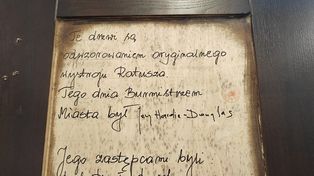 Te drzwi są
odwzorowaniem oryginalnego
wystroju Ratusza
Tego dnia Burmistrzem
Miasta był Jerzy
Jego zastępcami byli